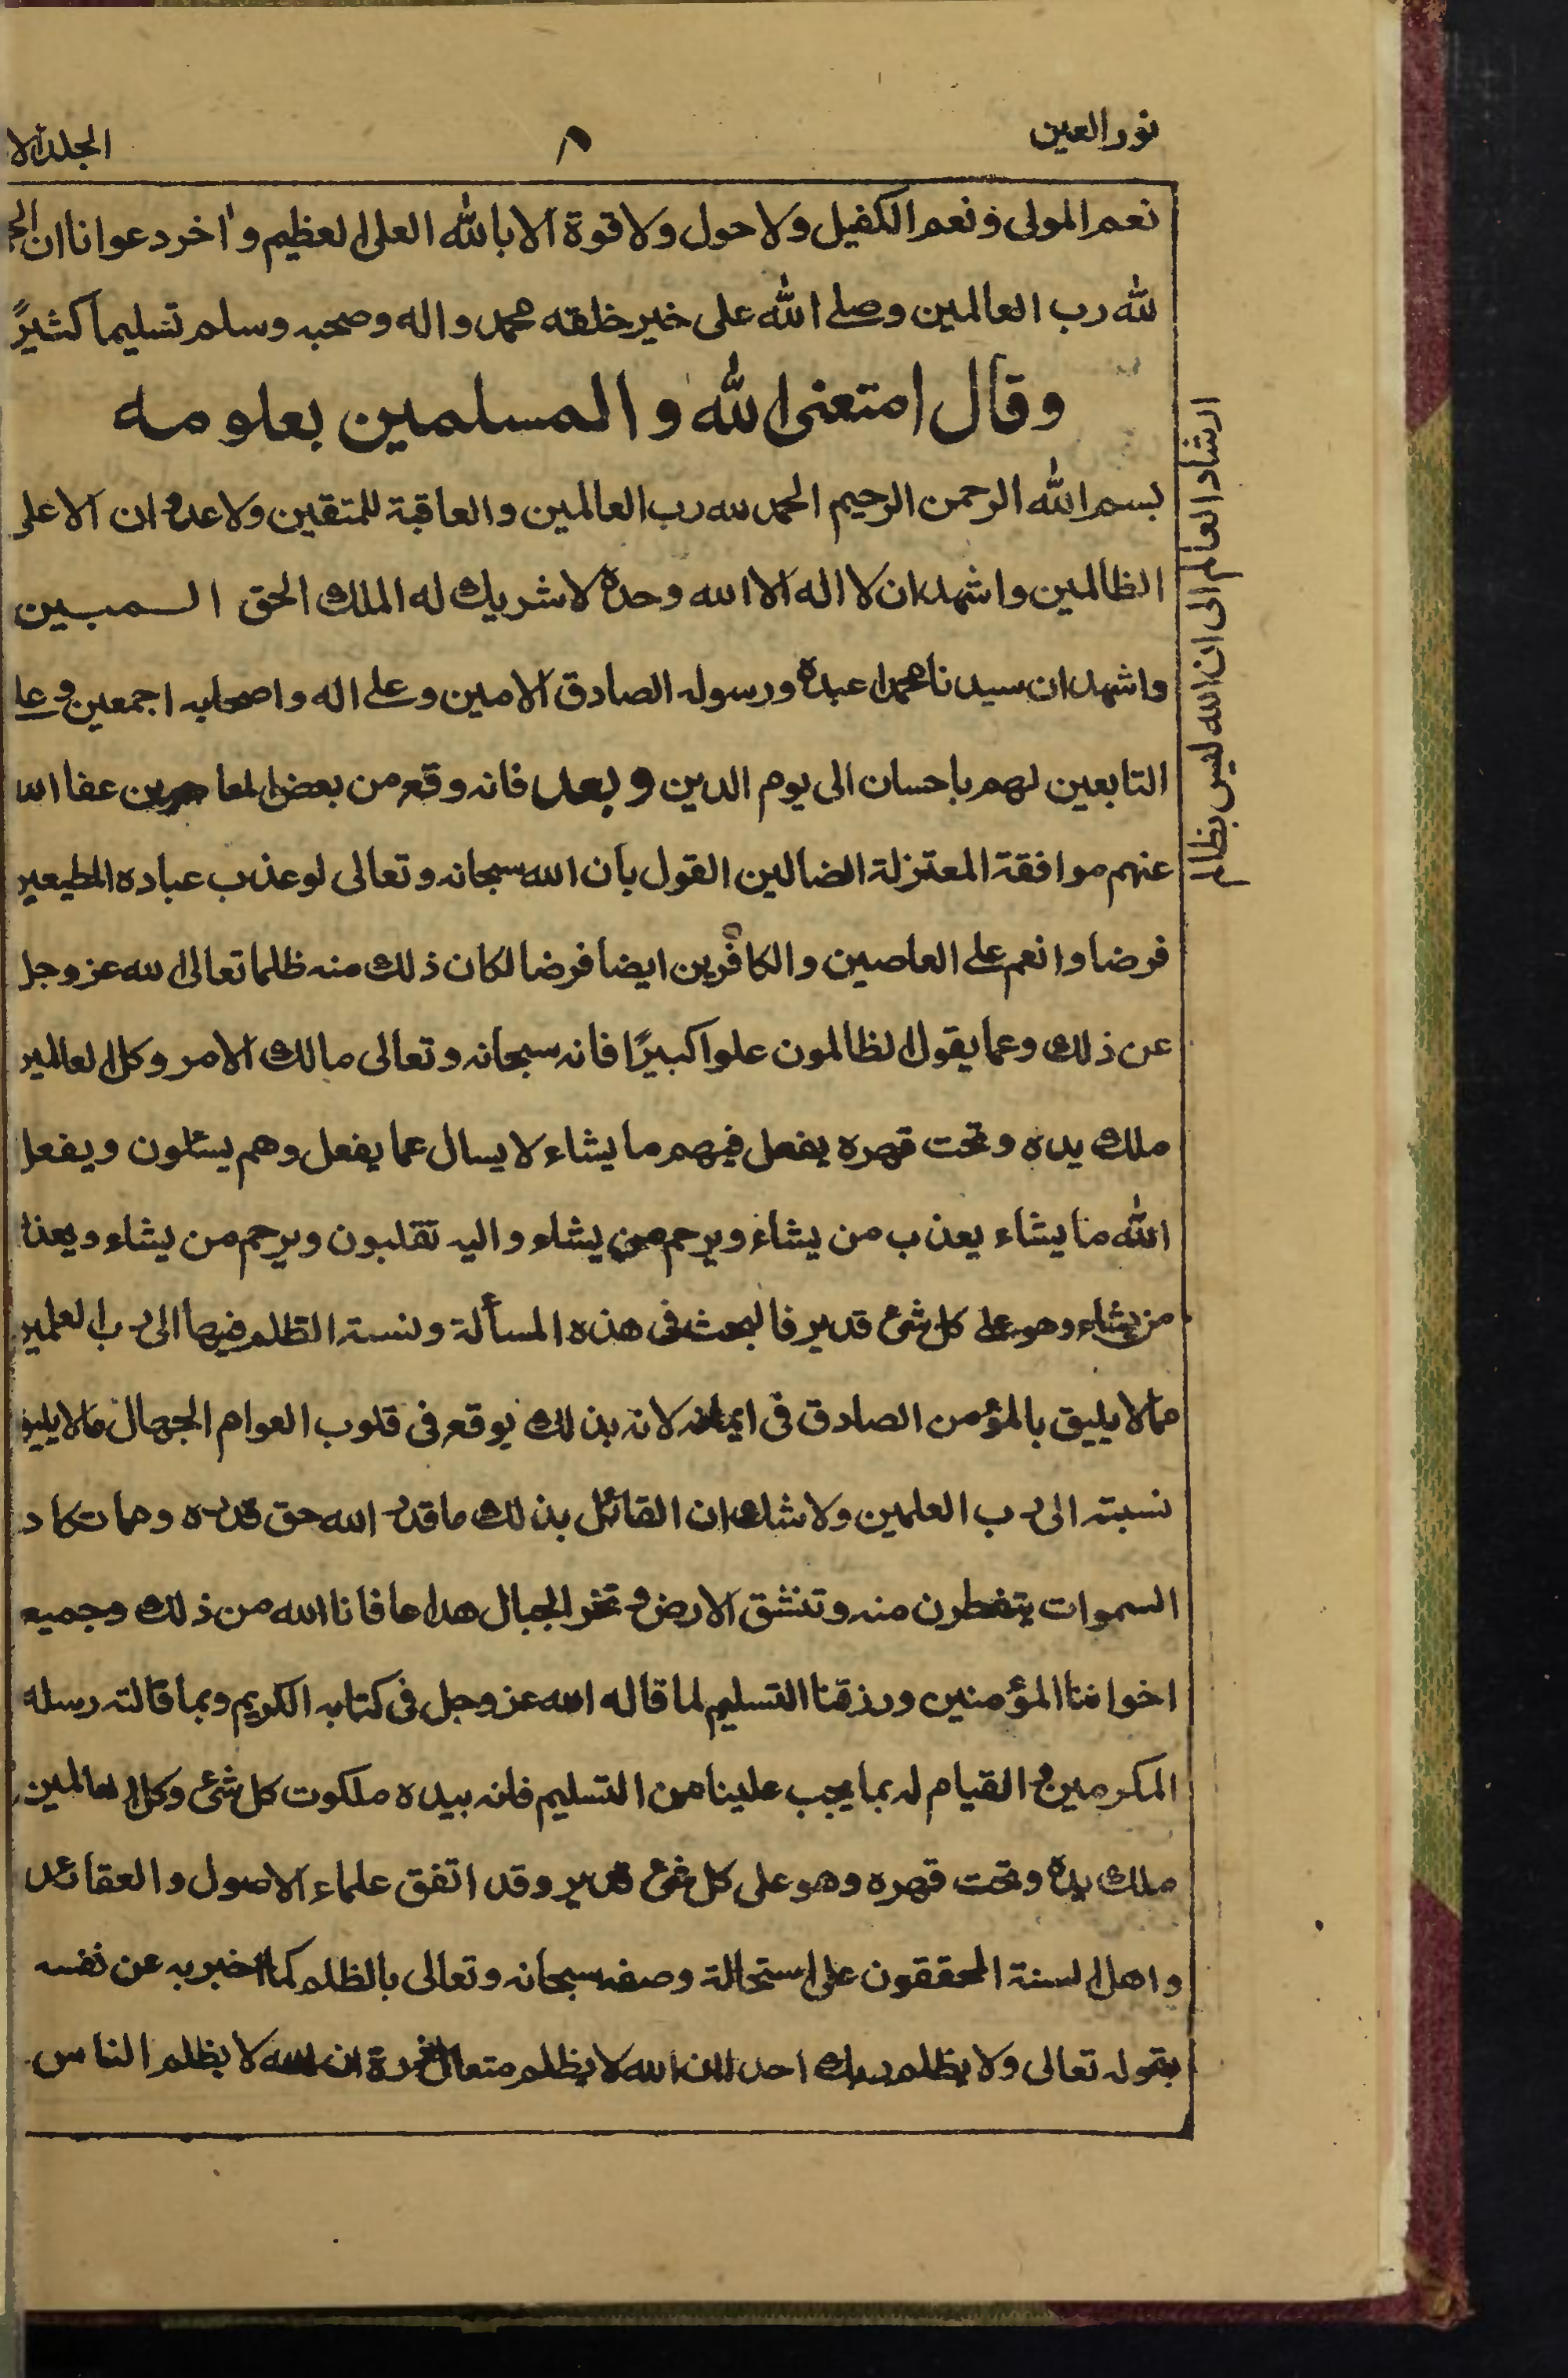 نور العين
٨
الجلد الا
نعم المولى ونعم الكفيل ولا حول ولا قوة الا بالله العلى العظيم واخر دعوانا ان
لله رب العالمين وصلے الله على خير خلقه محمد واله وصحبه وسلم تسليما كثيرً
وقال امتعنى الله والمسلمين بعلومه
بسم الله الرحمن الرحيم الحمد لله رب العالمين والعاقبة للمتقين ولا عدوان الا على
الظالمين واشهد ان لا اله الا الله وحده لا شريك له الملك الحق المبين
واشهد ان سيدنا محمدا عبده ورسوله الصادق الامين وعلے اله واصحابه اجمعين و
التابعين لهم باحسان الى يوم الدين وبعد فانه وقع من بعض المعاصرين عفا الله
عنهم موافقة المعتزلة الضالين القول بان الله سبحانه وتعالى لو عذب عباده المطيعين
فرضا وانعم علے العاصين والكافرين ايضا فرضا لكان ذلك منه ظلما تعالى الله عز وجل
عن ذلك وعما يقول الظالمون علوا كبيرًا فانه سبحانه وتعالى مالك الامر وكل العالمين
ملك يده وتحت قهره يفعل فيهم ما يشاء لا يسال عما يفعل وهم يسئلون ويفعل
الله ما يشاء يعذب من يشاء ويرحم من يشاء واليه تقلبون ويرحم من يشاء ويعذ
من يشاء وهو علے كل شئ قدير فالبحث فى هذه المسألة ونسبة الظلم فيها الى رب العلمين
مما لا يليق بالمؤمن الصادق فى ايمانه لانه بذلك يوقع فى قلوب العوام الجهال ما لا يليق
نسبته الى رب العلمين ولا شك ان القائل بذلك ما قدر الله حق قدره ومما تكاد
السموات يتفطرن منه وتنشق الارض وتخر الجبال هدا عافانا الله من ذلك وجميع
اخواننا المؤمنين ورزقنا التسليم لما قاله الله عز وجل فى كتابه الكريم وبما قالته رسله
المكرمين و القيام له بما يجب علينا من التسليم فانه بيده ملكوت كل شئ وكل العالمين
ملك يده وتحت قهره وهو على كل شئ قدير وقد اتفق علماء الاصول والعقائد
واهل السنة المحققون على استحالة وصفه سبحانه وتعالى بالظلم كما اخبر به عن نفسه
بقوله تعالى ولا يظلم ربك احدا ان الله لا يظلم مثقال ذرة ان الله لا يظلم الناس
ارشاد العالم الى ان الله ليس بظالم